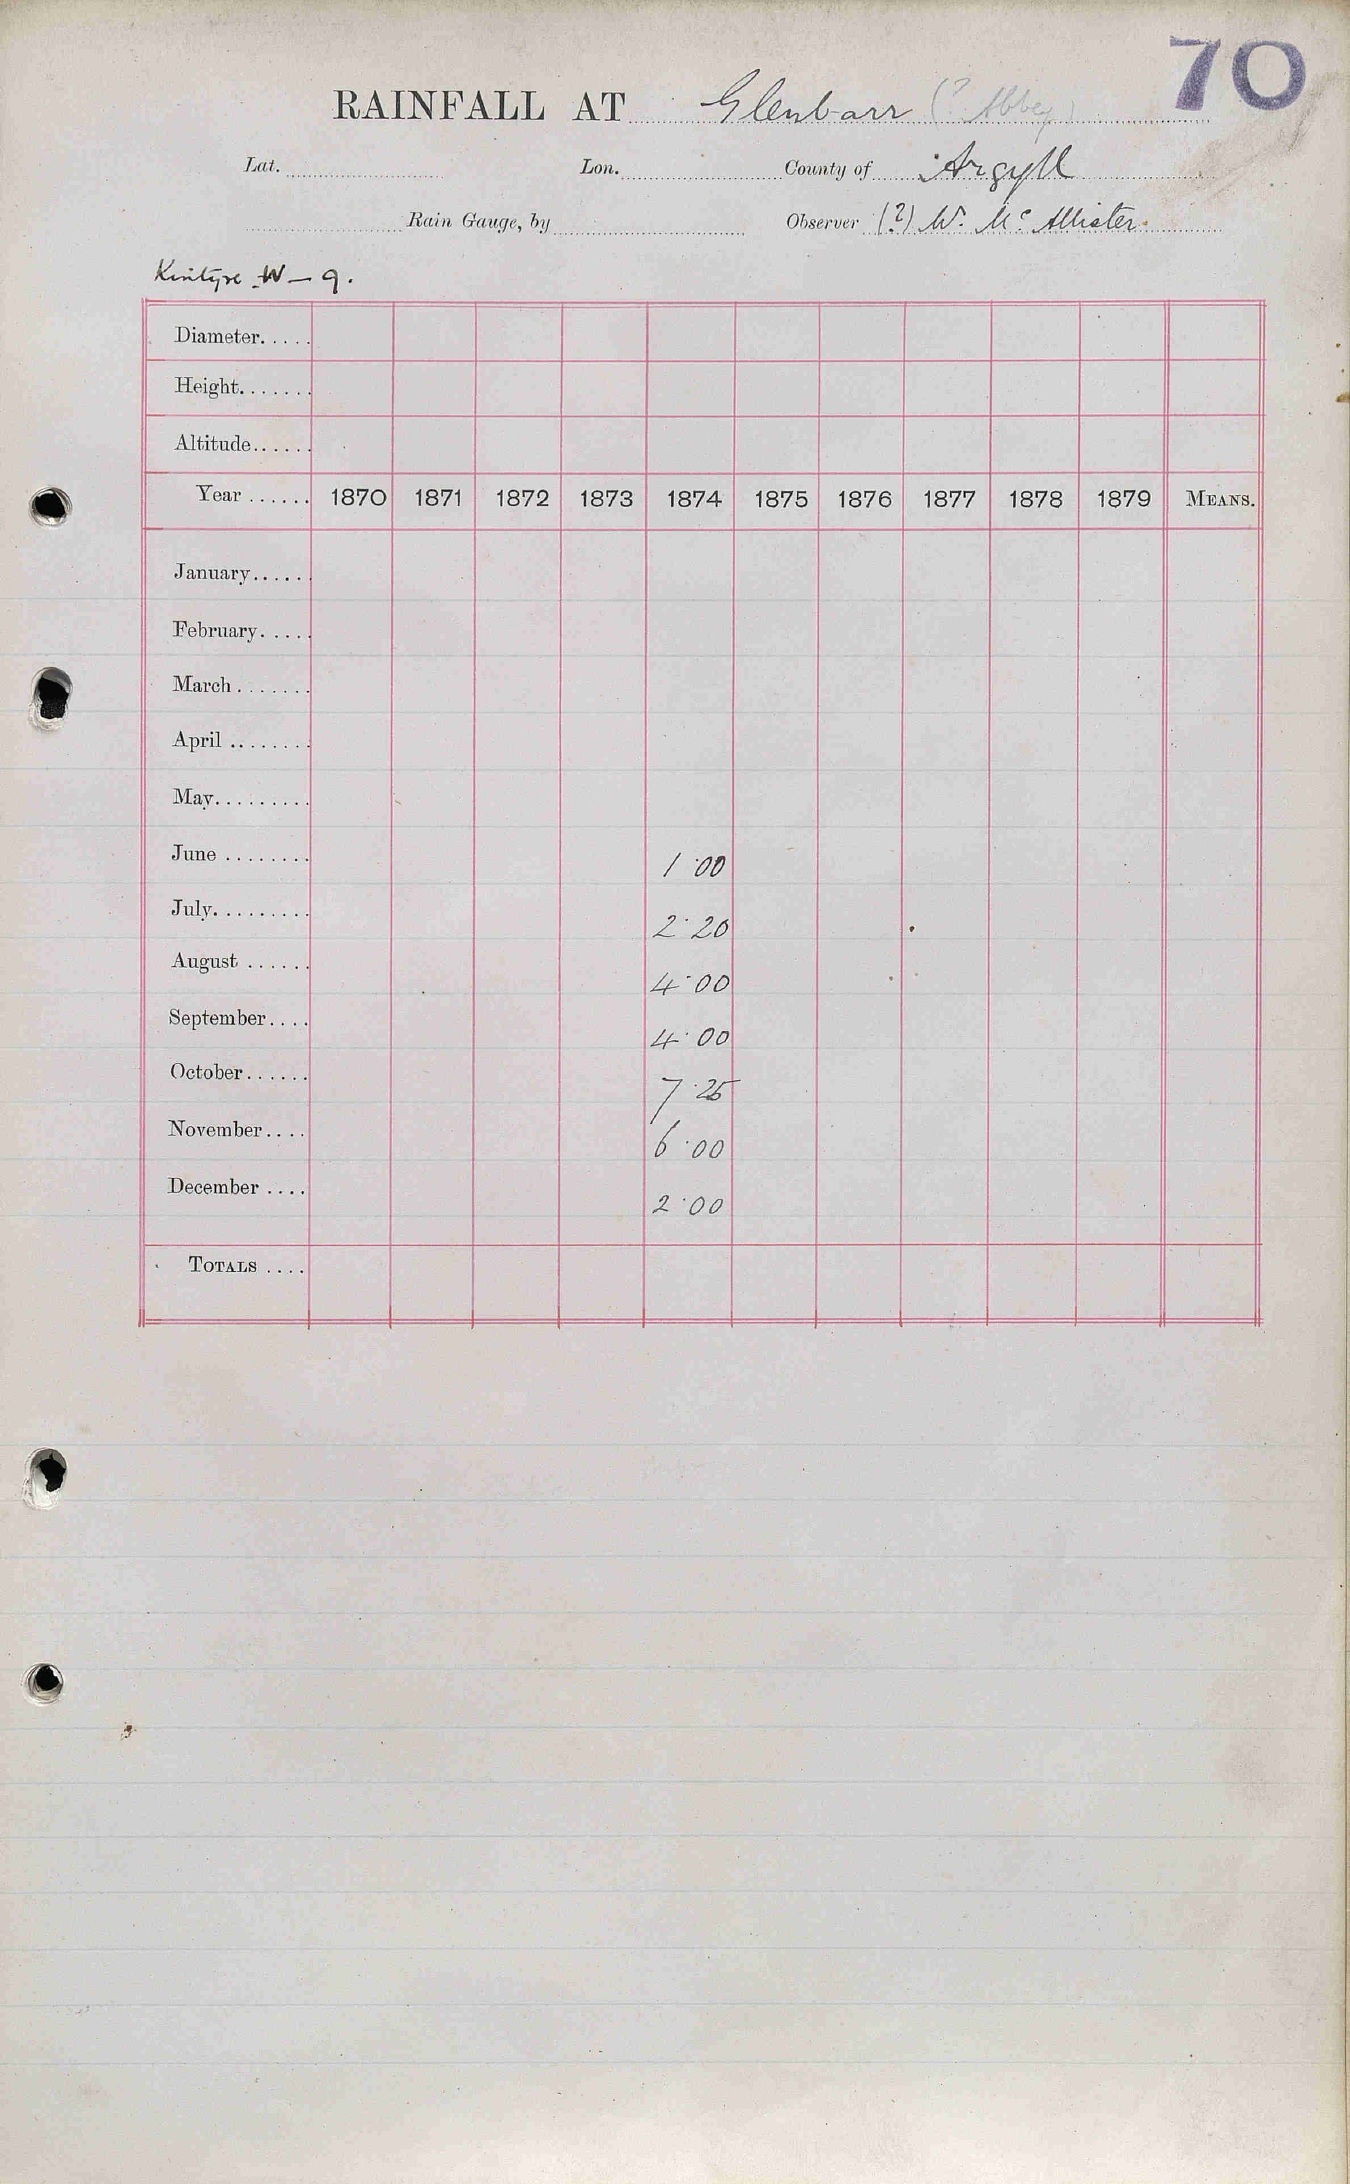 70
RAINFALL AT Glenbarr (? Abbey)
Lat. Lon. County of Argyll
Rain Gauge, by Observer (?) W. Mc Allister
Kintyre W – 9.
Diameter.....
Height.......
Altitude......
Year ...... 1870 1871 1872 1873 1874 1875 1876 1877 1878 1879 MEANS.
January......
February.....
March .......
April ........
May.........
June ........ 1·00
July......... 2·20
August ...... 4·00
September.... 4·00
October...... 7·25
November.... 6·00
December .... 2·00
TOTALS ....